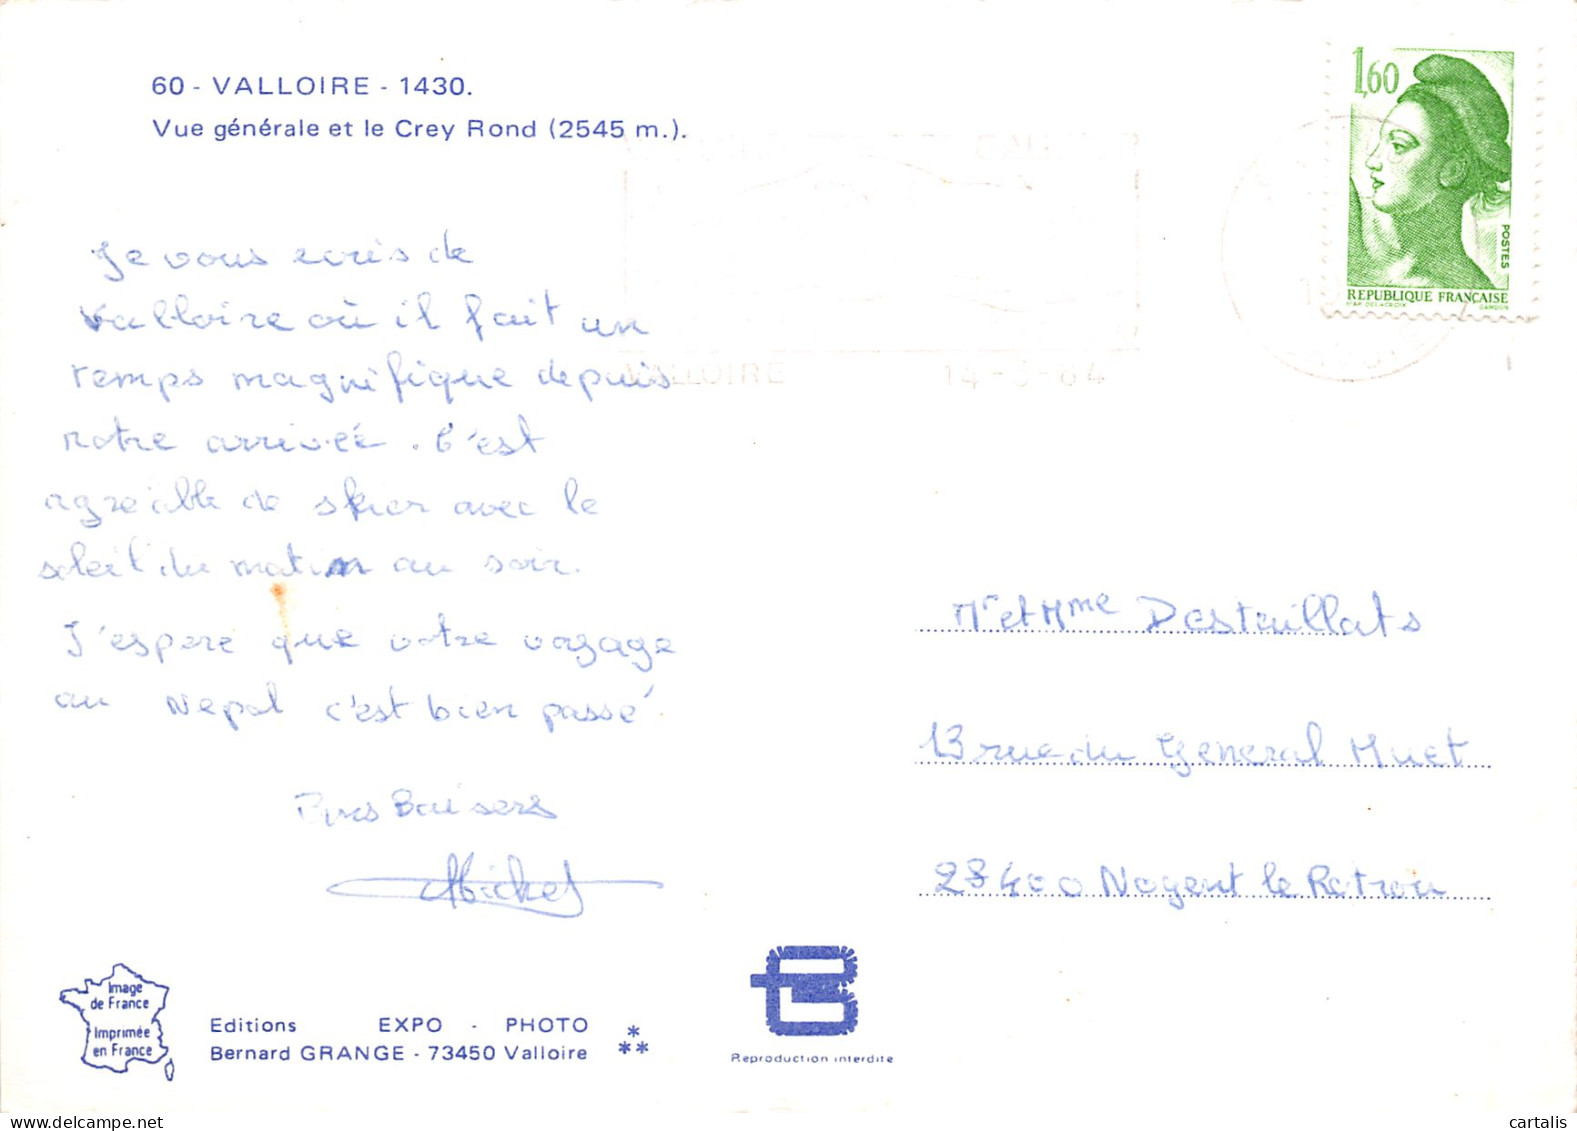 60 - VALLOIRE - 1430.
Vue générale et le Crey Rond (2545 m.).
1,60
POSTES
REPUBLIQUE FRANÇAISE
VALLOIRE 14-3-84
Je vous ecris de
Valloire où il fait un
temps magnifique depuis
notre arrivée. C'est
agréable de skier avec le
soleil du matin au soir.
J'espere que votre voyage
au Nepal c'est bien passé
Baisers
Michel
Mr et Mme Destaillats
13 rue du General Huet
28400 Nogent le Rotrou
Image
de France
Imprimée
en France
Editions EXPO - PHOTO
Bernard GRANGE - 73450 Valloire
* **
Reproduction interdite
cartalis